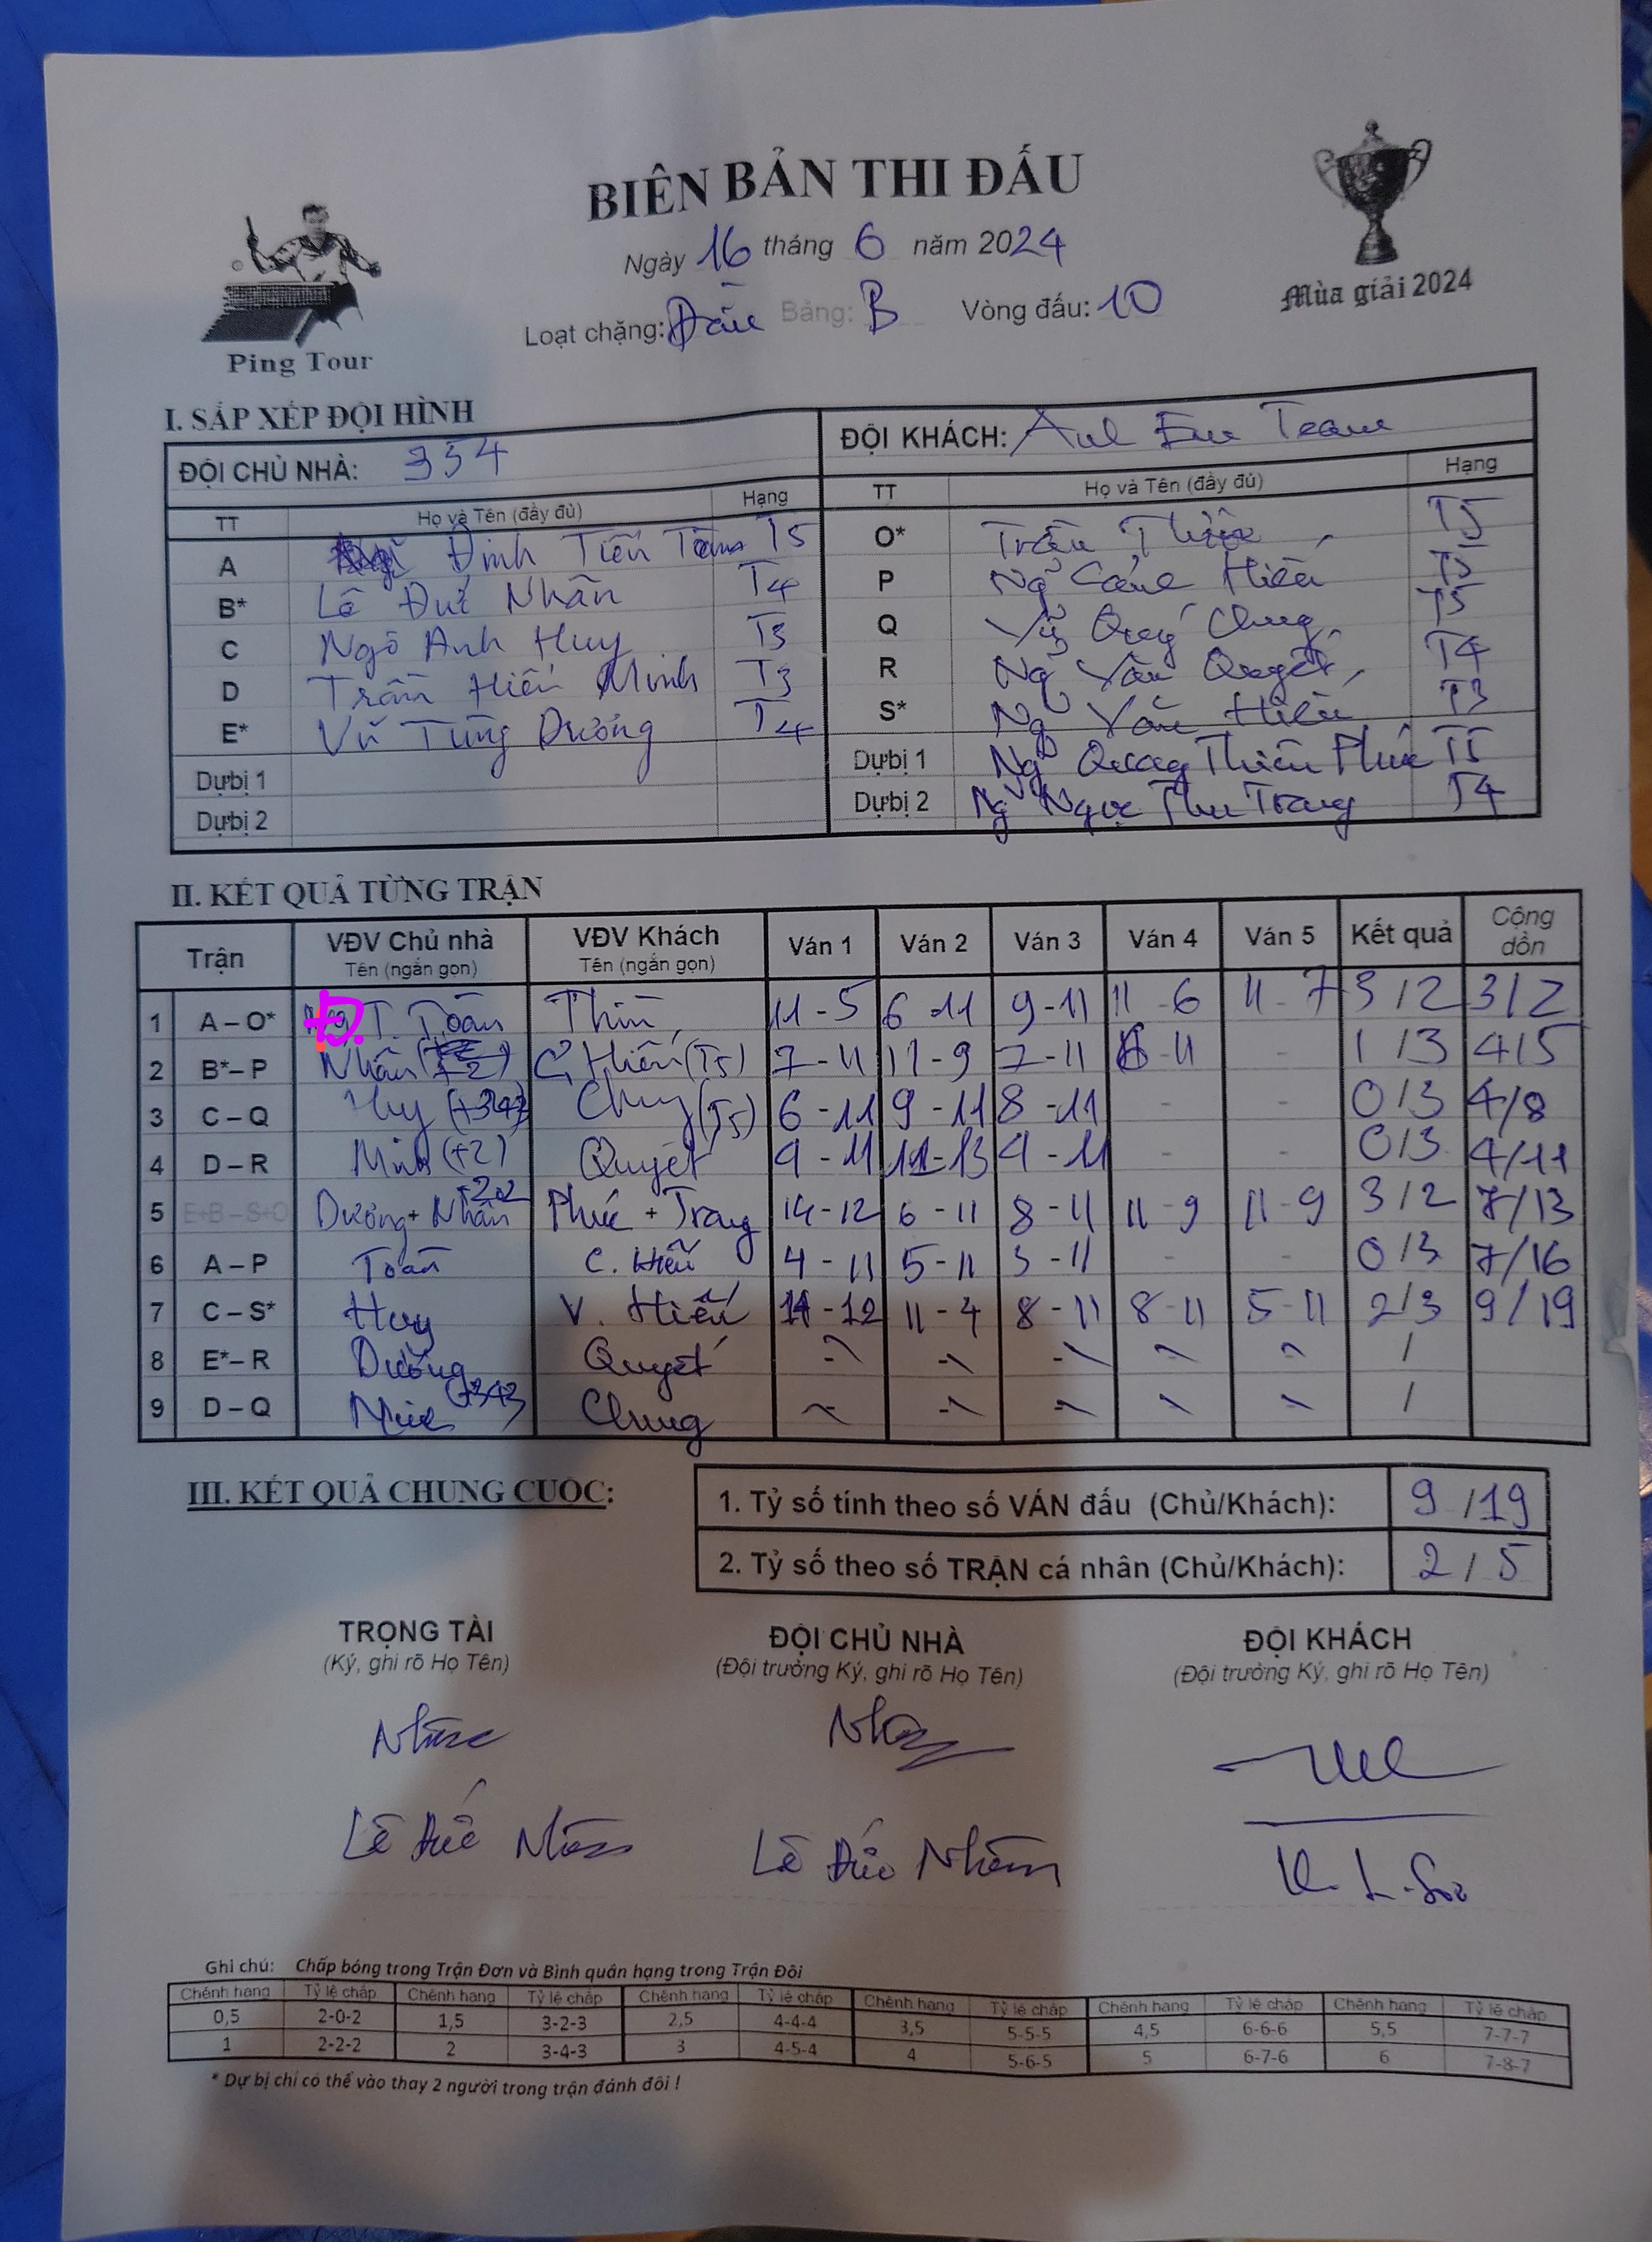 BIÊN BẢN THI ĐẤU
Ngày 16 tháng 6 năm 2024
Loạt chặng: Đầu Bảng: B Vòng đấu: 10
Ping Tour
Mùa giải 2024
I. SẮP XẾP ĐỘI HÌNH
ĐỘI CHỦ NHÀ: 354
TT Họ và Tên (đầy đủ) Hạng
A Đinh Tiến Toàn T5
B* Lê Đức Nhân T4
C Ngô Anh Huy T3
D Trần Hiếu Minh T3
E* Vũ Tùng Dương T4
Dự bị 1
Dự bị 2
ĐỘI KHÁCH: Anh Em Team
TT Họ và Tên (đầy đủ) Hạng
O* Trần T5
P Ng Cảnh Hiếu T5
Q Vũ Quý Chung T5
R Ng Văn Quyết T4
S* Ng Văn Hiếu T3
Dự bị 1 Ng Quang Thiên Phúc T5
Dự bị 2 Ng Ngọc Thu Trang T4
II. KẾT QUẢ TỪNG TRẬN
Trận VĐV Chủ nhà Tên (ngắn gọn) VĐV Khách Tên (ngắn gọn) Ván 1 Ván 2 Ván 3 Ván 4 Ván 5 Kết quả Cộng dồn
1 A – O* Đ. T. Toàn Thìn 11 - 5 6 - 11 9 - 11 11 - 6 11 - 7 3 / 2 3/2
2 B* – P Nhân C. Hiếu (T5) 7 - 11 11 - 9 7 - 11 - 11 - 1 / 3 4/5
3 C – Q Huy (+343) Chung (T5) 6 - 11 9 - 11 8 - 11 - - 0 / 3 4/8
4 D – R Minh (+2) Quyết 9 - 11 11 - 13 9 - 11 - - 0 / 3 4/11
5 E+B – S+O Dương + Nhân +202 Phúc + Trang 14 - 12 6 - 11 8 - 11 11 - 9 11 - 9 3 / 2 7/13
6 A – P Toàn C. Hiếu 4 - 11 5 - 11 5 - 11 - - 0 / 3 7/16
7 C – S* Huy V. Hiếu - 12 11 - 4 8 - 11 8 - 11 5 - 11 2 / 3 9/19
8 E* – R Dương Quyết - - - - - /
9 D – Q Minh (+343) Chung - - - - - /
III. KẾT QUẢ CHUNG CUỘC:
1. Tỷ số tính theo số VÁN đấu (Chủ/Khách): 9 / 19
2. Tỷ số theo số TRẬN cá nhân (Chủ/Khách): 2 / 5
TRỌNG TÀI ĐỘI CHỦ NHÀ ĐỘI KHÁCH
(Ký, ghi rõ Họ Tên) (Đội trưởng Ký, ghi rõ Họ Tên) (Đội trưởng Ký, ghi rõ Họ Tên)
Lê Đức Nhân Lê Đức Nhân
Ghi chú: Chấp bóng trong Trận Đơn và Bình quân hạng trong Trận Đôi
Chênh hạng Tỷ lệ chấp Chênh hạng Tỷ lệ chấp Chênh hạng Tỷ lệ chấp Chênh hạng Tỷ lệ chấp Chênh hạng Tỷ lệ chấp Chênh hạng Tỷ lệ chấp
0,5 2-0-2 1,5 3-2-3 2,5 4-4-4 3,5 5-5-5 4,5 6-6-6 5,5 7-7-7
1 2-2-2 2 3-4-3 3 4-5-4 4 5-6-5 5 6-7-6 6 7-8-7
* Dự bị chỉ có thể vào thay 2 người trong trận đánh đôi !